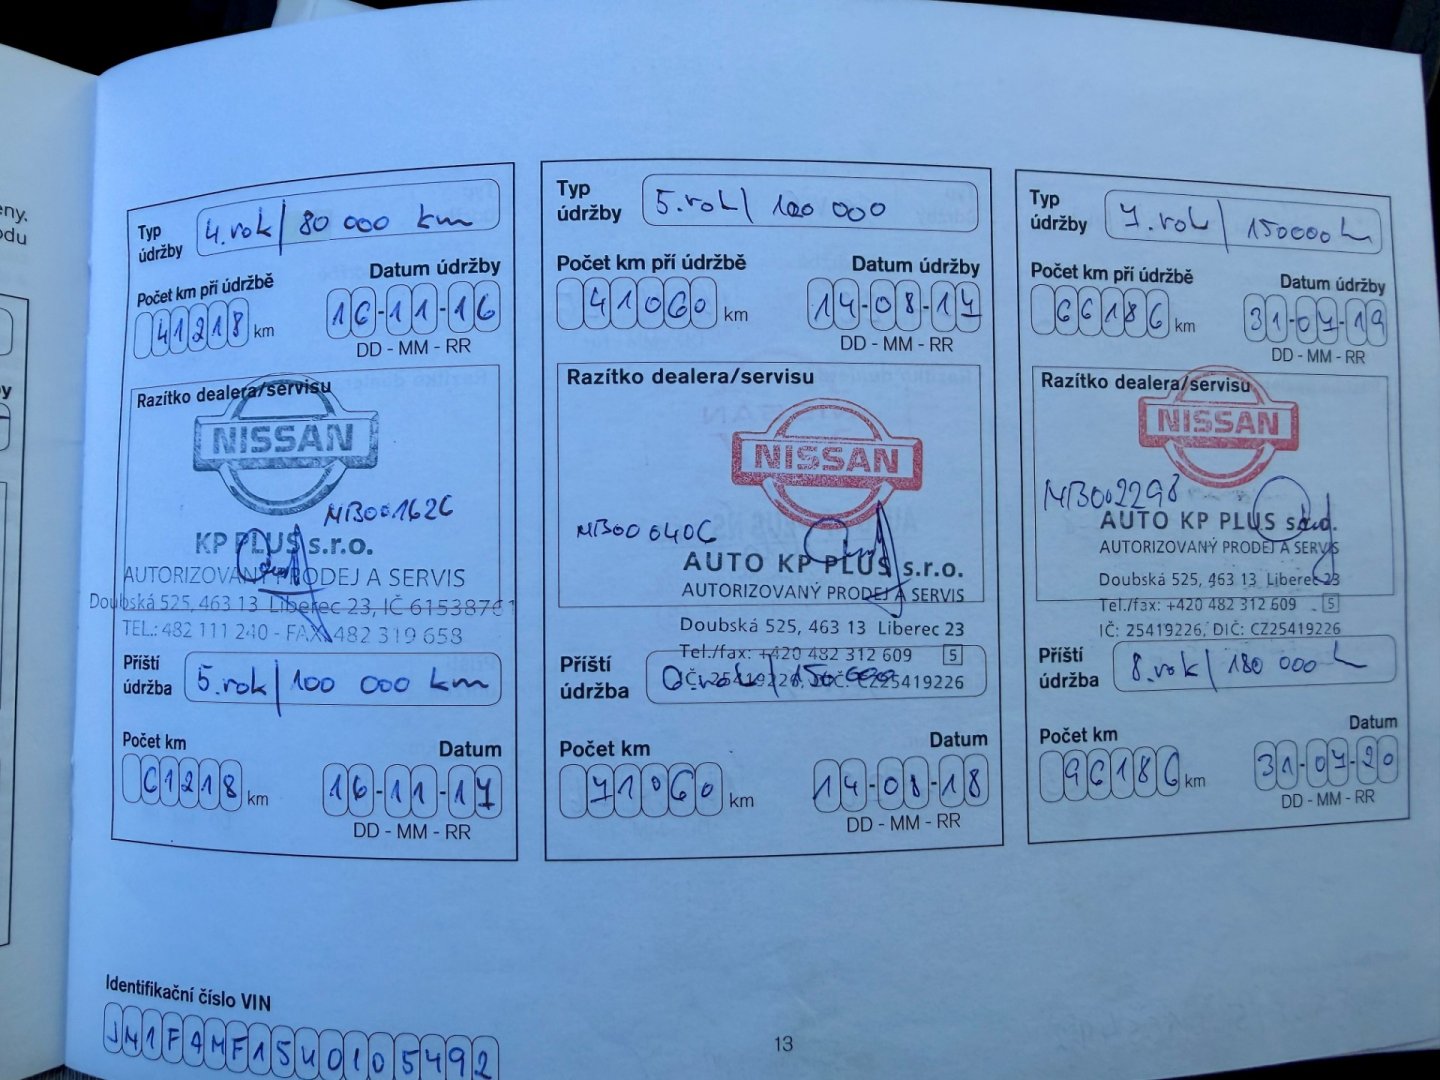 eny.
odu
by
Typ
údržby
4.rok/ 80 000 km
Počet km při údržbě
Datum údržby
41218 km
16-11-16
DD - MM - RR
Razítko dealera/servisu
NISSAN
MB001626
KP PLUS s.r.o.
AUTORIZOVANÝ PRODEJ A SERVIS
Doubská 525, 463 13 Liberec 23, IČ 61538761
TEL.: 482 111 240 - FAX: 482 319 658
Příští
údržba
5.rok/ 100 000 km
Počet km
Datum
61218 km
16-11-17
DD - MM - RR
Typ
údržby
5.rok/ 100 000
Počet km při údržbě
Datum údržby
41060 km
14-08-17
DD - MM - RR
Razítko dealera/servisu
NISSAN
MB000406
AUTO KP PLUS s.r.o.
AUTORIZOVANÝ PRODEJ A SERVIS
Doubská 525, 463 13 Liberec 23
Tel./fax: +420 482 312 609 5
IČ: 25419226, DIČ: CZ25419226
Příští
údržba
6.rok/ 150 000
Počet km
Datum
71060 km
14-08-18
DD - MM - RR
Typ
údržby
7.rok/ 150000 k
Počet km při údržbě
Datum údržby
66186 km
31-07-19
DD - MM - RR
Razítko dealera/servisu
NISSAN
MB002298
AUTO KP PLUS s.r.o.
AUTORIZOVANÝ PRODEJ A SERVIS
Doubská 525, 463 13 Liberec 23
Tel./fax: +420 482 312 609 5
IČ: 25419226, DIČ: CZ25419226
Příští
údržba
8.rok/ 180 000 k
Počet km
Datum
96186 km
31-07-20
DD - MM - RR
Identifikační číslo VIN
JN1FAMF15U0105492
13